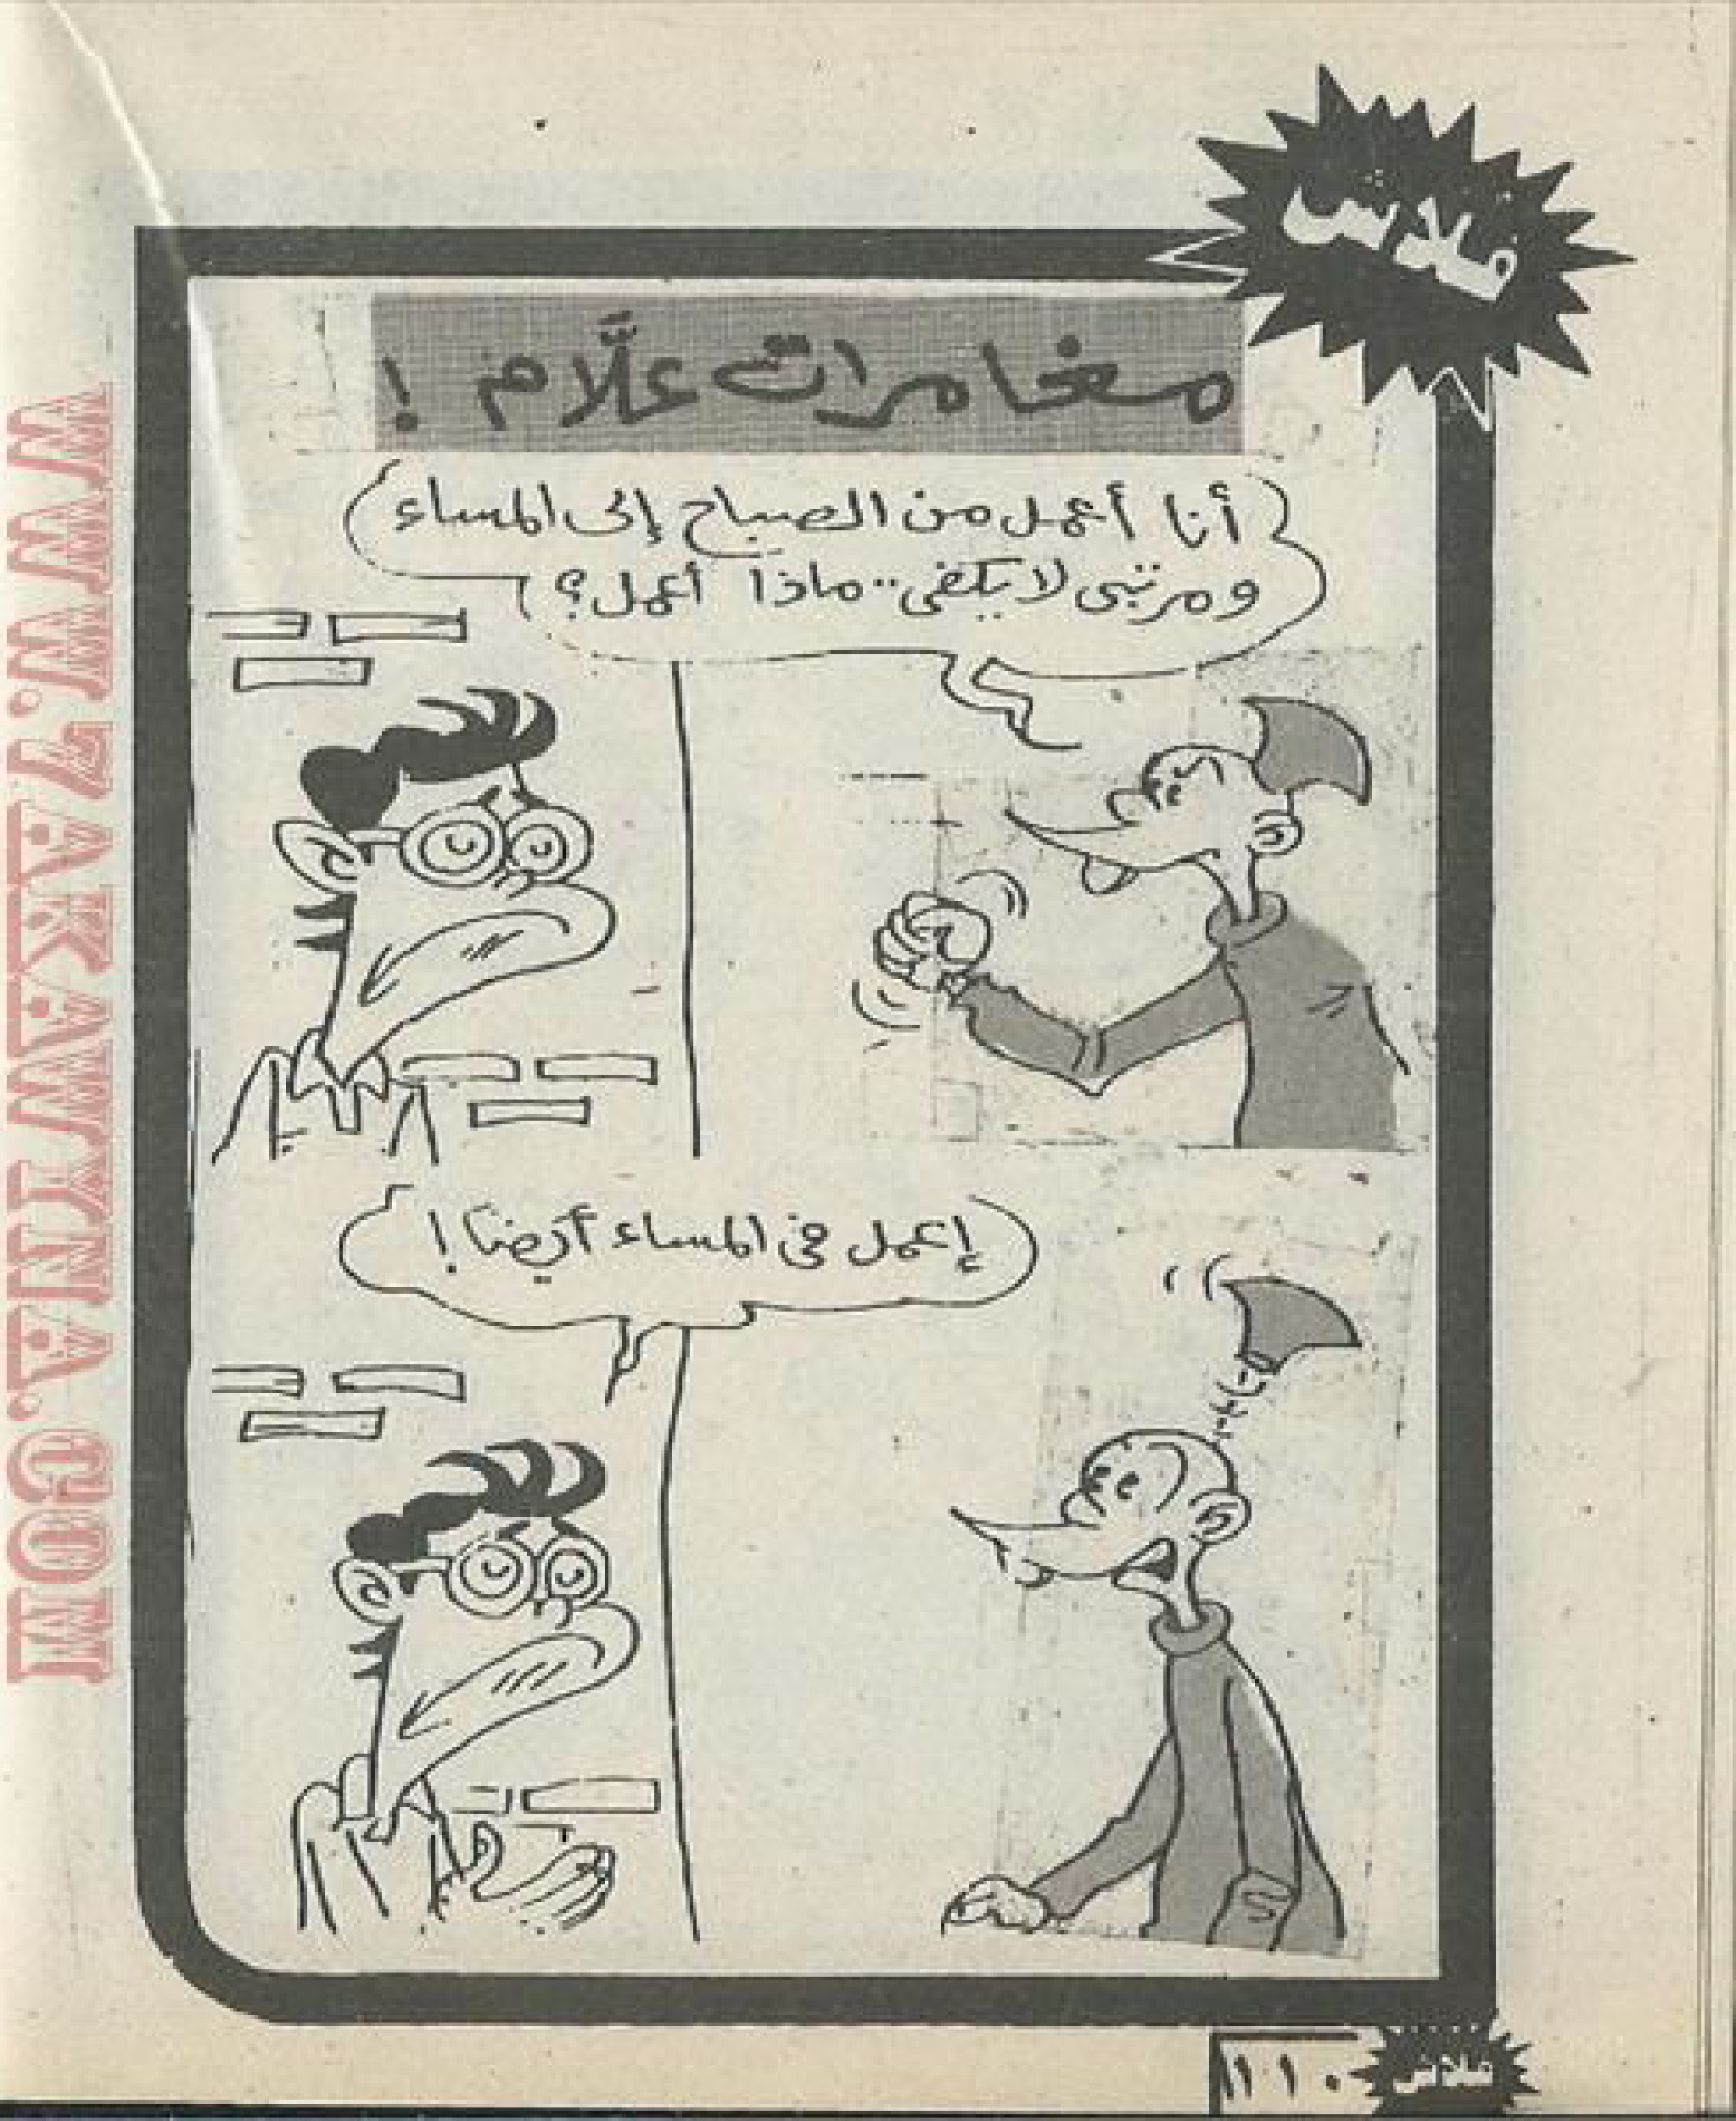 فلاش
مغامرات علَّام !
أنا أعمل من الصباح إلى المساء
ومرتبى لا يكفى .. ماذا أعمل ؟
إعمل فى المساء أيضًا !
١١٠
فلاش
WWW.7AKAWINA.COM